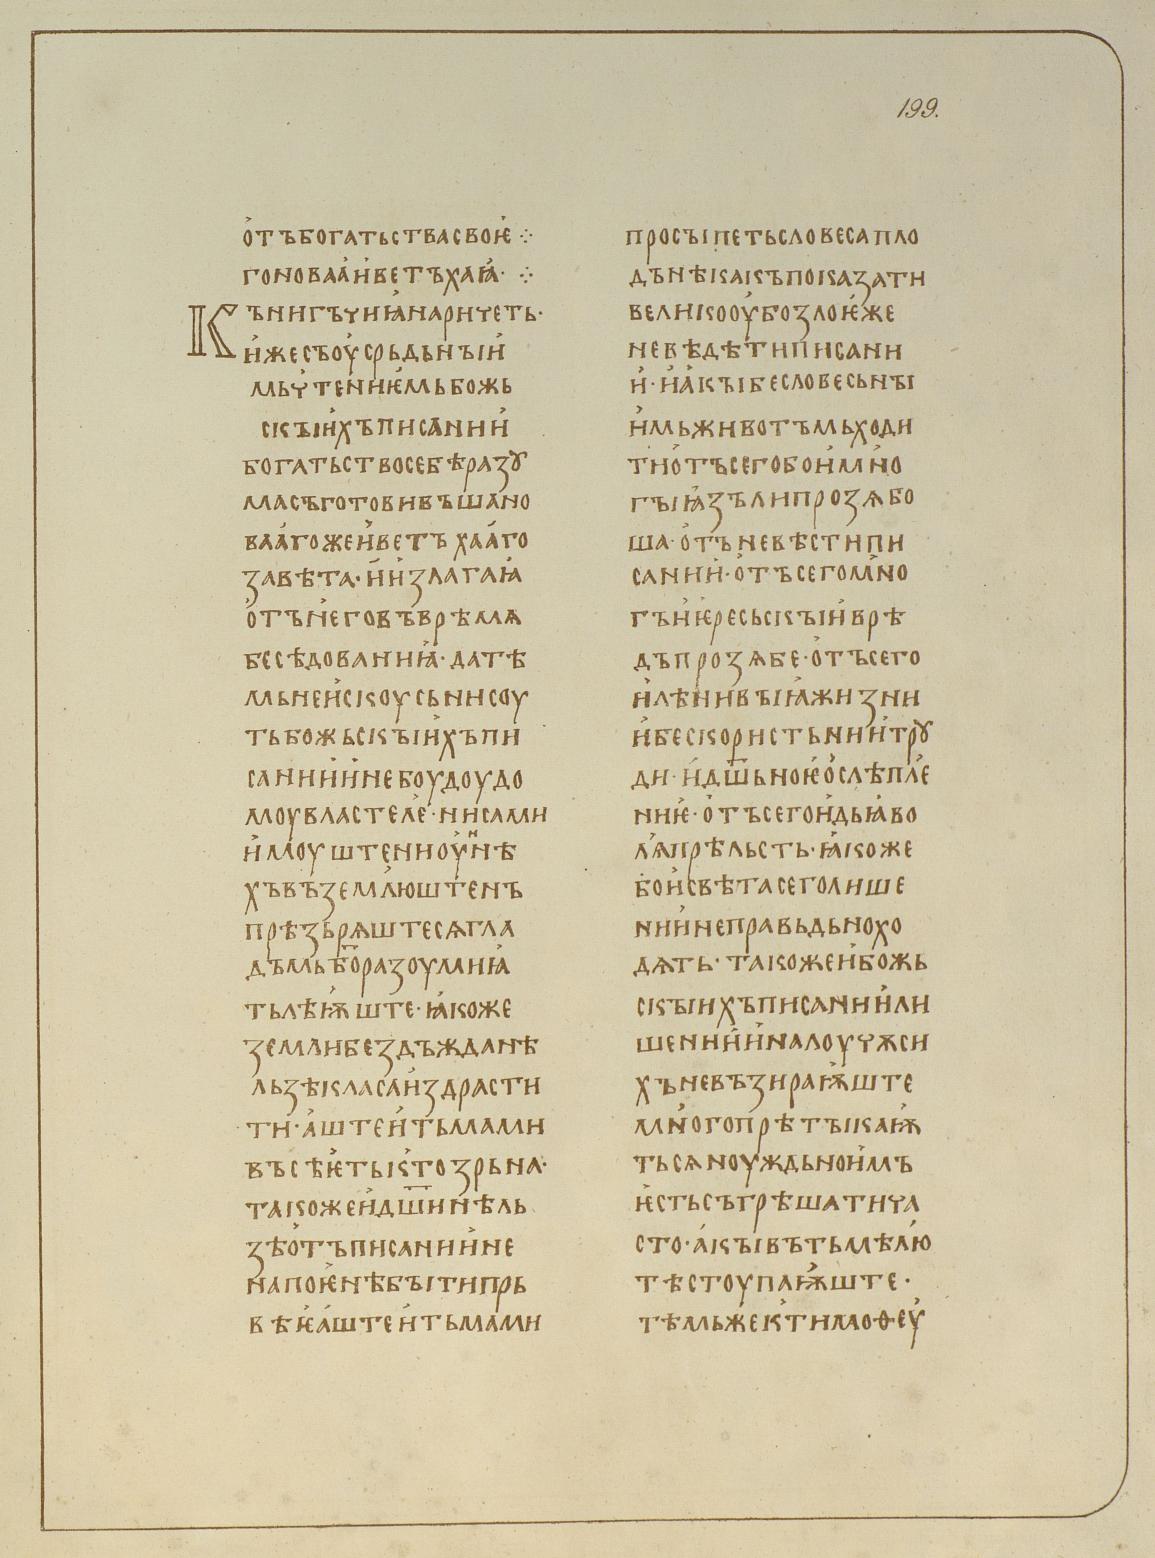 199.
отъбогатьствасвоѥ ⁘
гоновааиветъхаꙗ· ⁘
Кънигъчиꙗнаричеть·
ижесъоусрьдьныи
мьчтениѥмьбожь
скыихъписании
богатьствосебѣразꙋ
масъготовивъшано
ваагожеиветъхааго
завѣта·иизлагаꙗ
отънеговъврѣмѧ
бесѣдованиꙗ·датѣ
мьнеискоусьнисоу
тьбожьскыихъпи
санииинебоудоудо
моувластеле·нисами
имоуштениоунѣ
хъвъземлюштенъ
прѣзьрѧштесѧгла
дъмьб҃оразоумиꙗ
тьлѣѭште·ꙗкоже
земли бездъжданѣ
льзѣкласаиздрасти
ти·аштеитьмами
въсѣѥтькⷭ҇тозрьна·
такожеид҃шинѣль
зѣотъписаниине
напоѥнѣбытипрь
вѣѥаштеитьмами
просыпетьсловесапло
дънѣкакъпоказати
великооубозлоѥже
невѣдѣтиписани
и·иꙗкыбесловесьны
имьживотъмьходи
тиотъсегобоимно
гыꙗзълипрозѧбо
ша·отъневѣстипи
сании·отъсегомно
гъиѥресьскыиврѣ
дъпрозѧбе·отъсего
илѣнивыꙗжизни
ибескористьниитрꙋ
ди·ид҃шьноѥослѣпле
ниѥ·отъсегоидьꙗво
лѧпрѣльсть·ꙗкоже
боисвѣтасеголише
ниинеправьдьнохо
дѧть·такожеибожь
скыихъписаниили
шениииналоучѫси
хъневъзираѭште
многопрѣтыкаѭ
тьсѧноуждьноимъ
ѥстьсъгрѣшатича
сто·акывътьмѣлю
тѣстоупаѭште·
тѣмьжектимаоѳеу